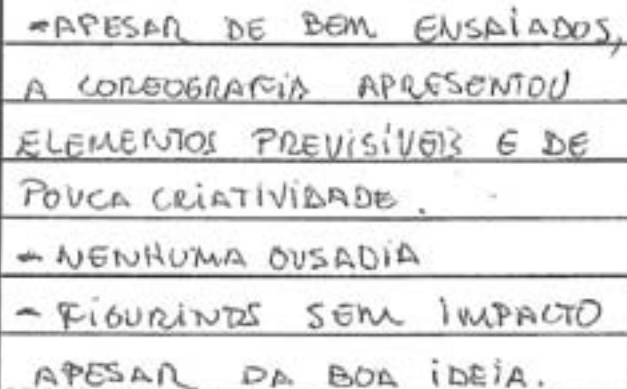 - APESAR DE BEM ENSAIADOS,
A COREOGRAFIA APRESENTOU
ELEMENTOS PREVISÍVEIS E DE
POUCA CRIATIVIDADE.
- NENHUMA OUSADIA
- FIGURINOS SEM IMPACTO
APESAR DA BOA IDEIA.